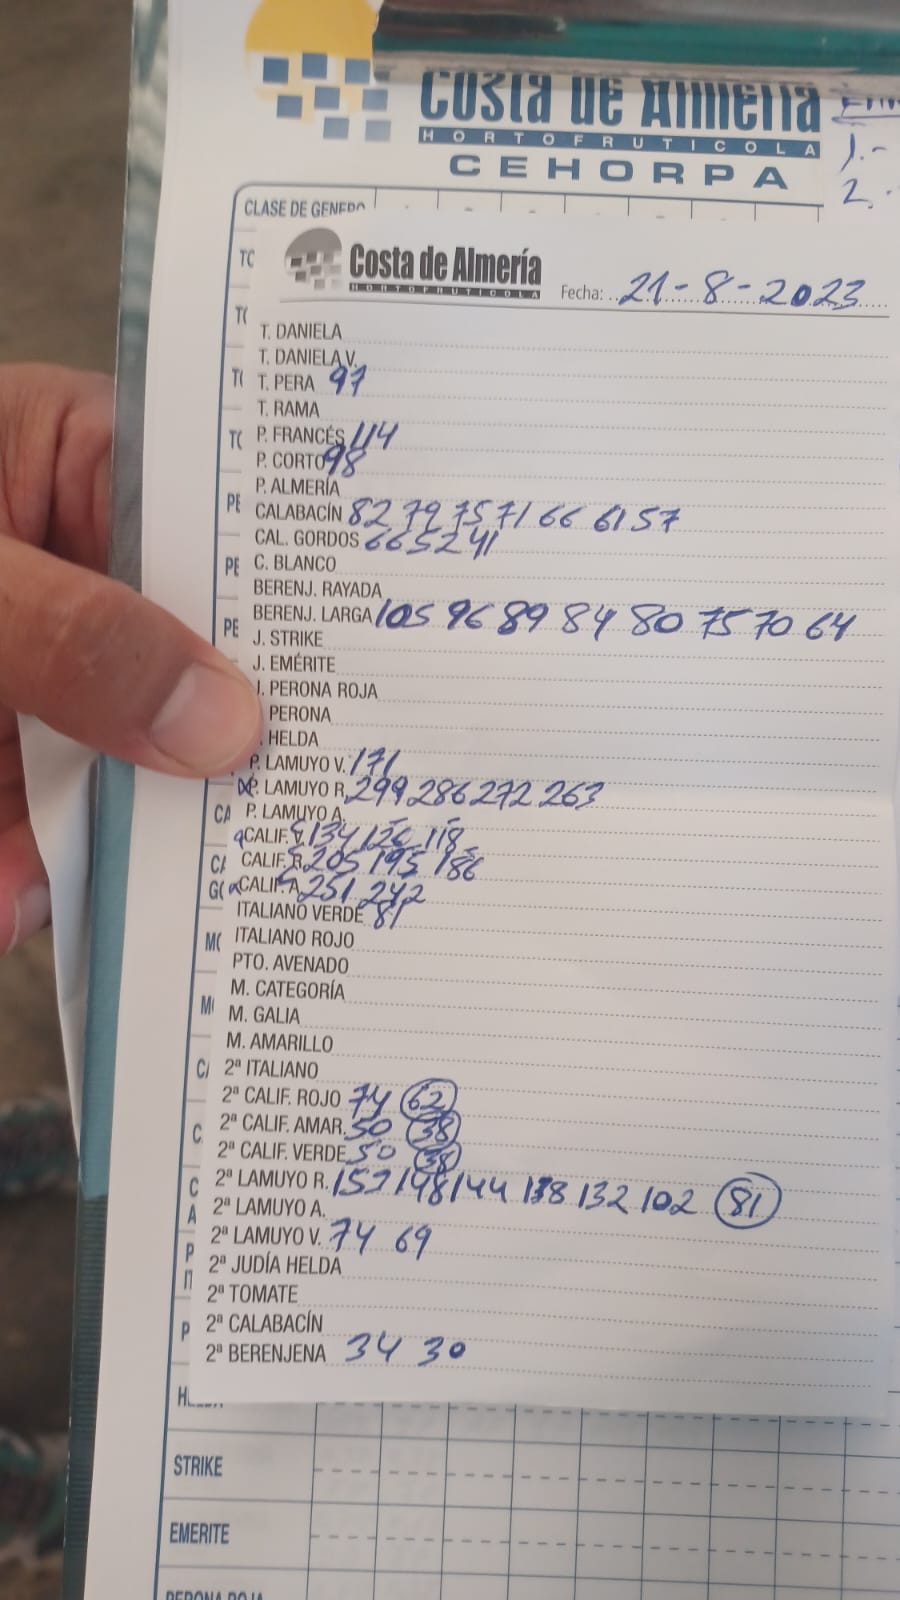 Costa de Almería
HORTOFRUTICOLA
CEHORPA
1.-
2.-
CLASE DE GENERO
Costa de Almería
HORTOFRUTICOLA
Fecha: 21-8-2023
T. DANIELA
T. DANELA V.
T. PERA 97
T. RAMA
P. FRANCÉS 114
P. CORTO 98
P. ALMERÍA
CALABACÍN 82 79 75 71 66 61 57
CAL. GORDOS 66 52 41
C. BLANCO
BERENJ. RAYADA
BERENJ. LARGA 105 96 89 84 80 75 70 64
J. STRIKE
J. EMÉRITE
J. PERONA ROJA
PERONA
HELDA
P. LAMUYO V. 171
P. LAMUYO R. 299 286 272 263
P. LAMUYO A.
CALIF. V. 134 126 118
CALIF. R. 205 195 186
CALIF. A 251 242
ITALIANO VERDE 81
ITALIANO ROJO
PTO. AVENADO
M. CATEGORÍA
M. GALIA
M. AMARILLO
2ª ITALIANO
2ª CALIF. ROJO 74 62
2ª CALIF. AMAR. 50 38
2ª CALIF. VERDE 50 38
2ª LAMUYO R. 152 148 144 138 132 102 81
2ª LAMUYO A.
2ª LAMUYO V. 74 69
2ª JUDÍA HELDA
2ª TOMATE
2ª CALABACÍN
2ª BERENJENA 34 30
STRIKE
EMERITE
PERONA ROJA